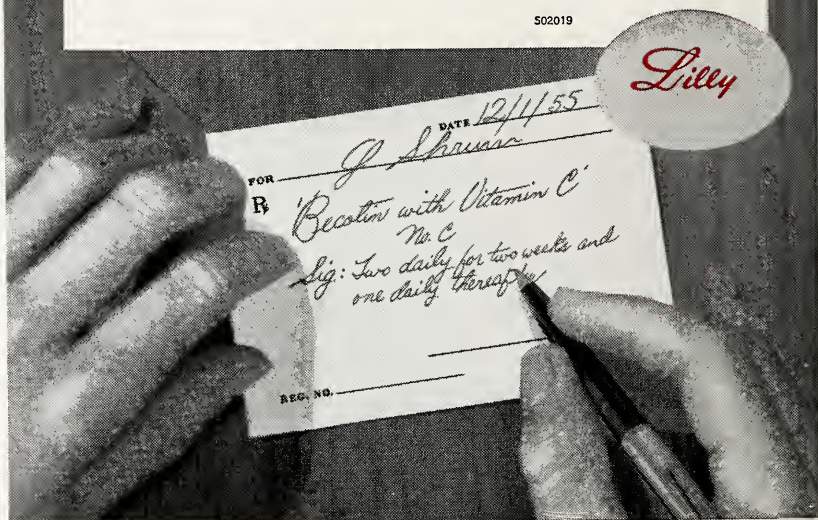 S02019
Lilly
DATE 12/1/55
FOR G Shrum
℞ 'Becotin with Vitamin C'
No. C
Sig: Two daily for two weeks and
one daily thereafter
REG. NO.